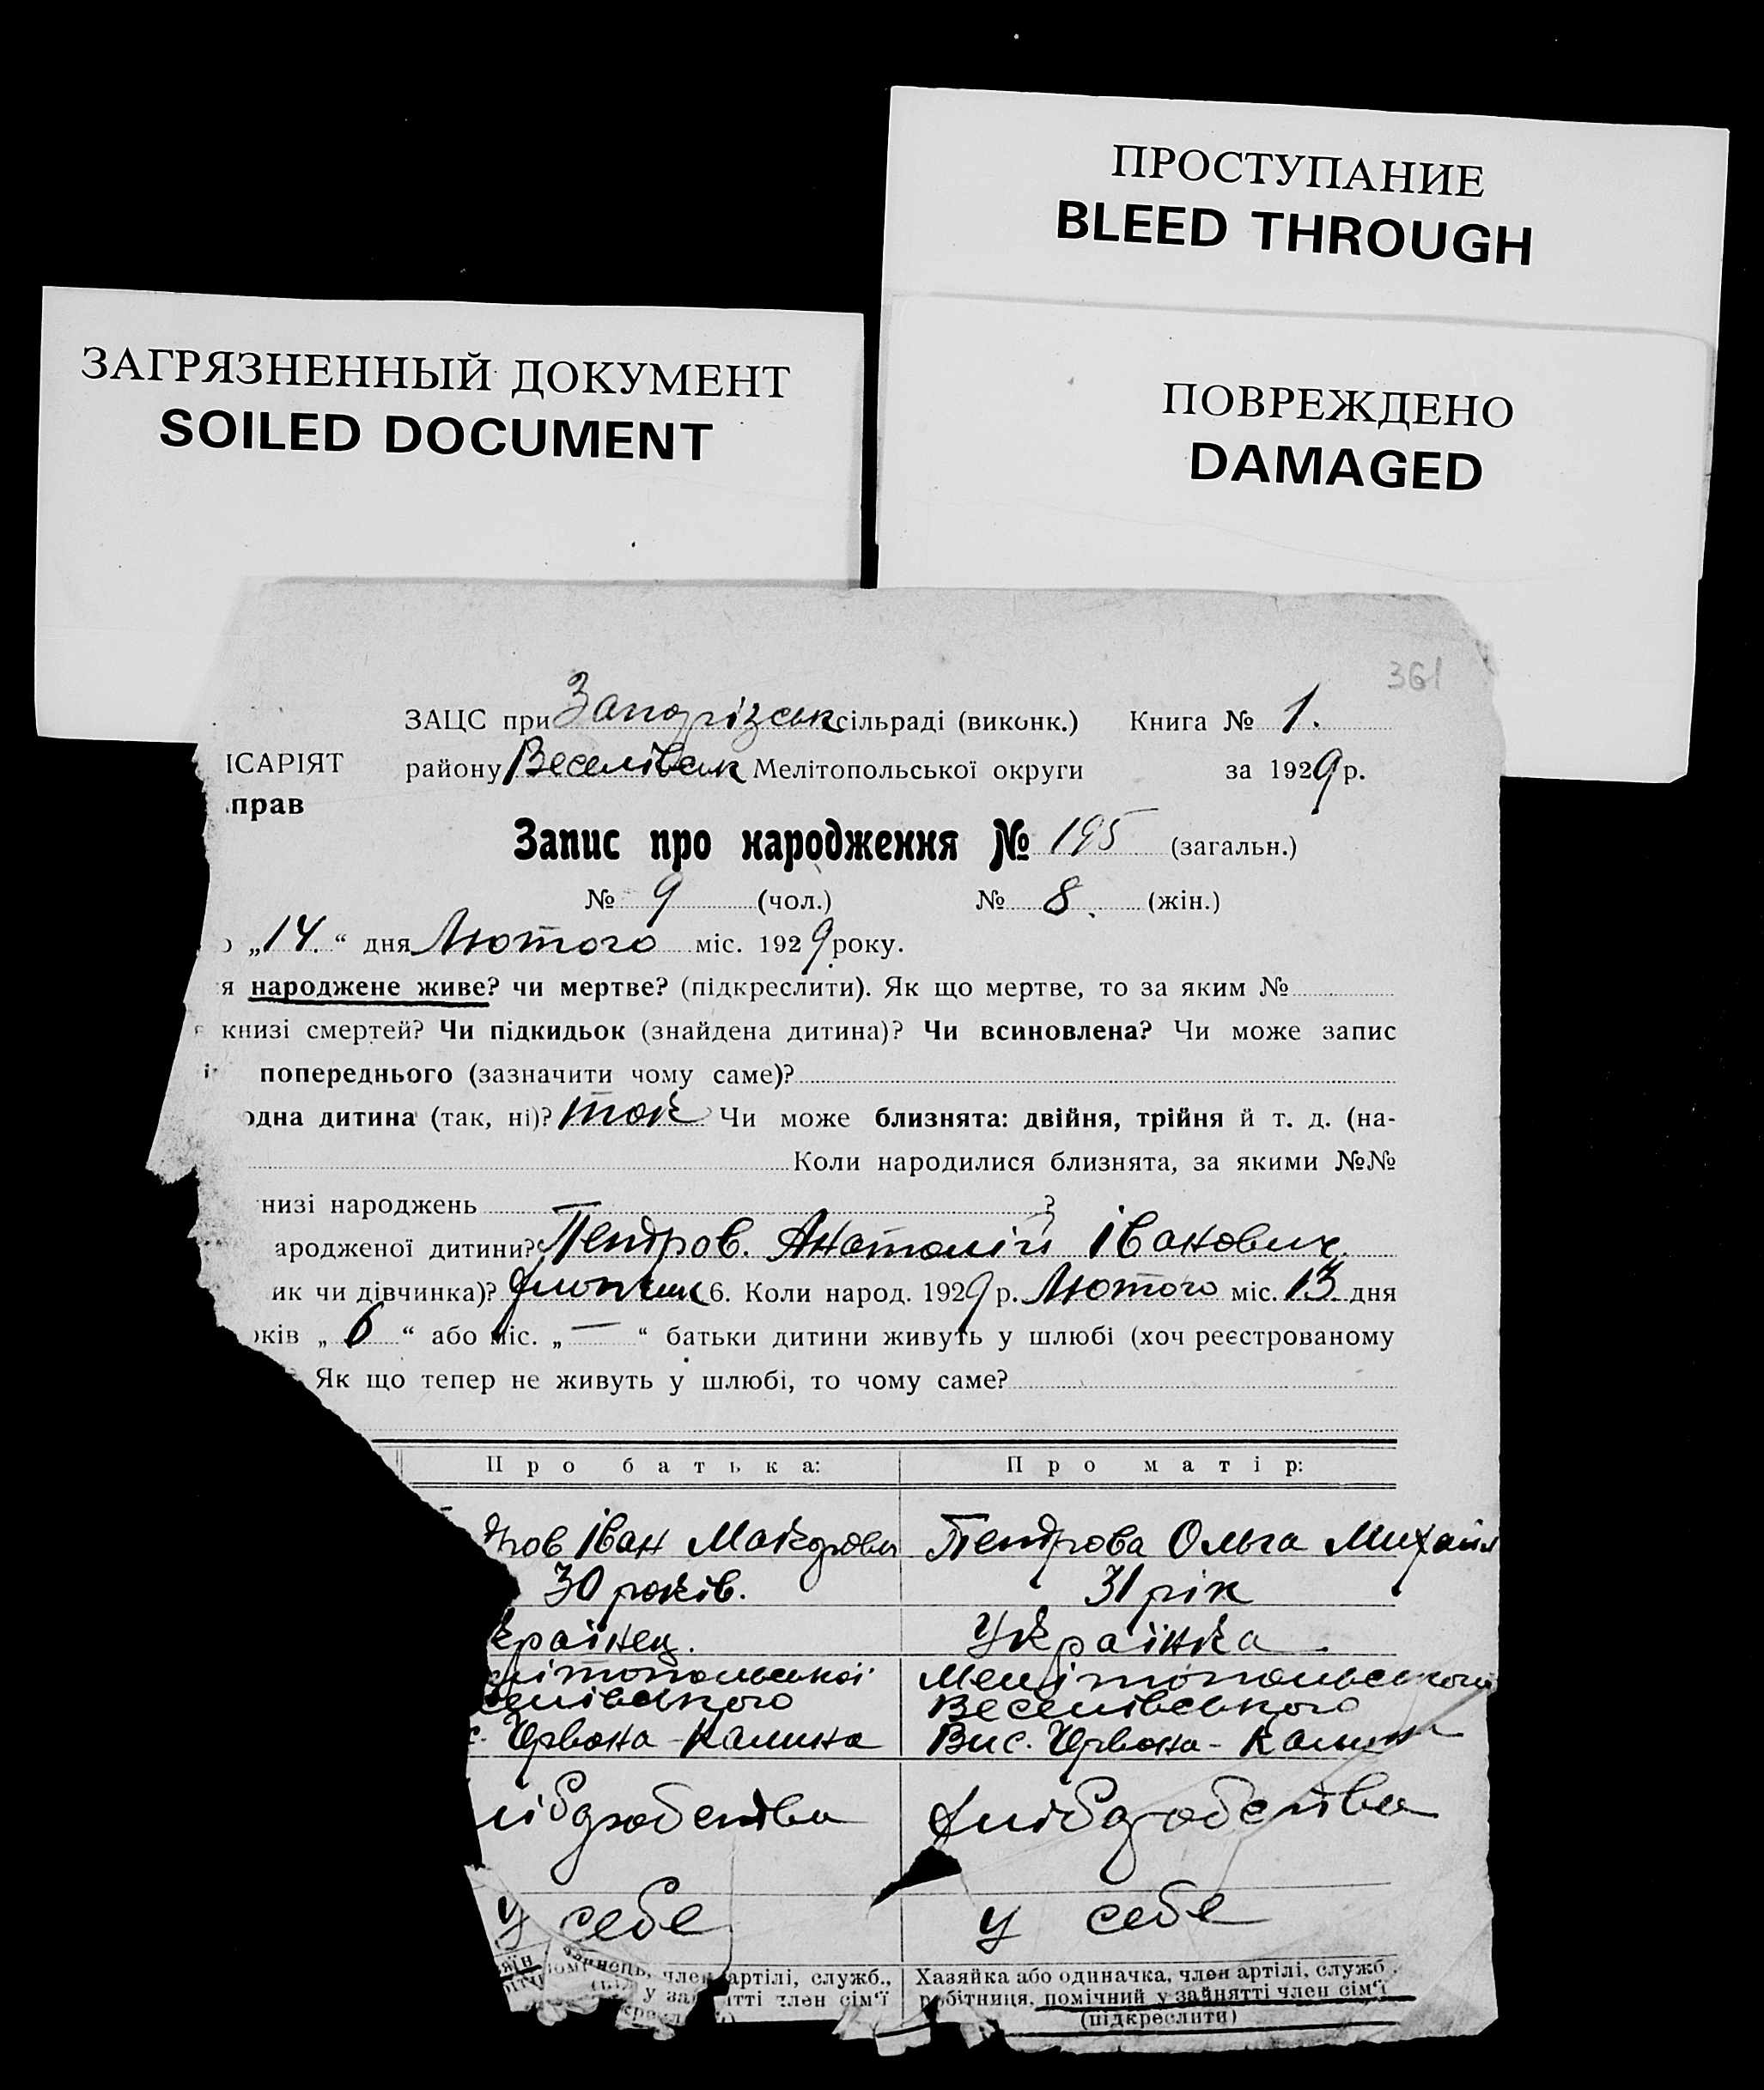 ПРОСТУПАНИЕ
BLEED THROUGH
ЗАГРЯЗНЕННЫЙ ДОКУМЕНТ
SOILED DOCUMENT
ПОВРЕЖДЕНО
DAMAGED
361
ЗАЦС при Запорізськ сільраді (виконк.) Книга № 1.
ІСАРІЯТ
району Веселівськ Мелітопольської округи за 1929 р.
прав
Запис про народження № 195 (загальн.)
№ 9 (чол.) № 8. (жін.)
„14.“ дня Лютого міс. 1929 року.
я народжене живе? чи мертве? (підкреслити). Як що мертве, то за яким №
книзі смертей? Чи підкидьок (знайдена дитина)? Чи всиновлена? Чи може запис
попереднього (зазначити чому саме)?
одна дитина (так, ні)? так Чи може близнята: двійня, трійня й т. д. (на-
Коли народилися близнята, за якими №№
низі народжень ?
ародженої дитини? Петров. Анатолій Іванович.
ик чи дівчинка)? хлопчик 6. Коли народ. 1929 р. Лютого міс. 13 дня
років „6“ або міс. „—“ батьки дитини живуть у шлюбі (хоч реєстрованому
Як що тепер не живуть у шлюбі, то чому саме?
Про батька: Про матір:
тров Іван Петрова Ольга Михайл
30 років. 31 рік
країнец. Українка
літопольської Мелітопольської
селівського Веселівського
с. Червона-Калина Вис. Червона-Калина
лібороbства Хліборобства
у себе у себе
член артілі, служб., Хазяйка або одиначка, член артілі, служб.
у занятті член сім'ї робітниця, помічний у зайнятті член сім'ї
(підкреслити)